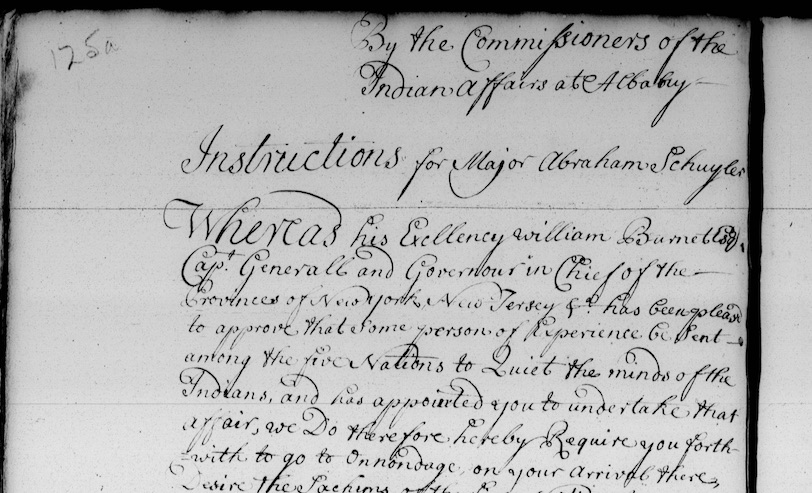 125a
By the Commissioners of the
Indian Affairs at Albany
Instructions for Major Abraham Schuyler
Whereas his Exellency William Burnet Esqr.
Capt. Generall and Governour in Chief of the
Provinces of New York, New Jersey &c. has been pleasd
to approve that some person of Experience be sent
among the five Nations to Quiet the minds of the
Indians, and has appointed you to undertake that
affair, we Do therefore hereby Require you forth
with to go to Onnondage, on your arrival there,
Desire the Sachims of the